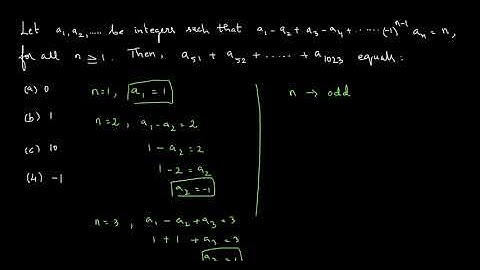 Let a₁, a₂, ..... be integers such that a₁ - a₂ + a₃ - a₄ + ······(-1)ⁿ⁻¹ aₙ = n,
for all n ≥ 1. Then, a₅₁ + a₅₂ + ······ + a₁₀₂₃ equals:
(a) 0
(b) 1
(c) 10
(4) -1
n=1, a₁ = 1
n=2, a₁-a₂ = 2
1 - a₂ = 2
1 - 2 = a₂
a₂ = -1
n=3, a₁ - a₂ + a₃ = 3
1 + 1 + a₃ = 3
a₃ = 1
n → odd